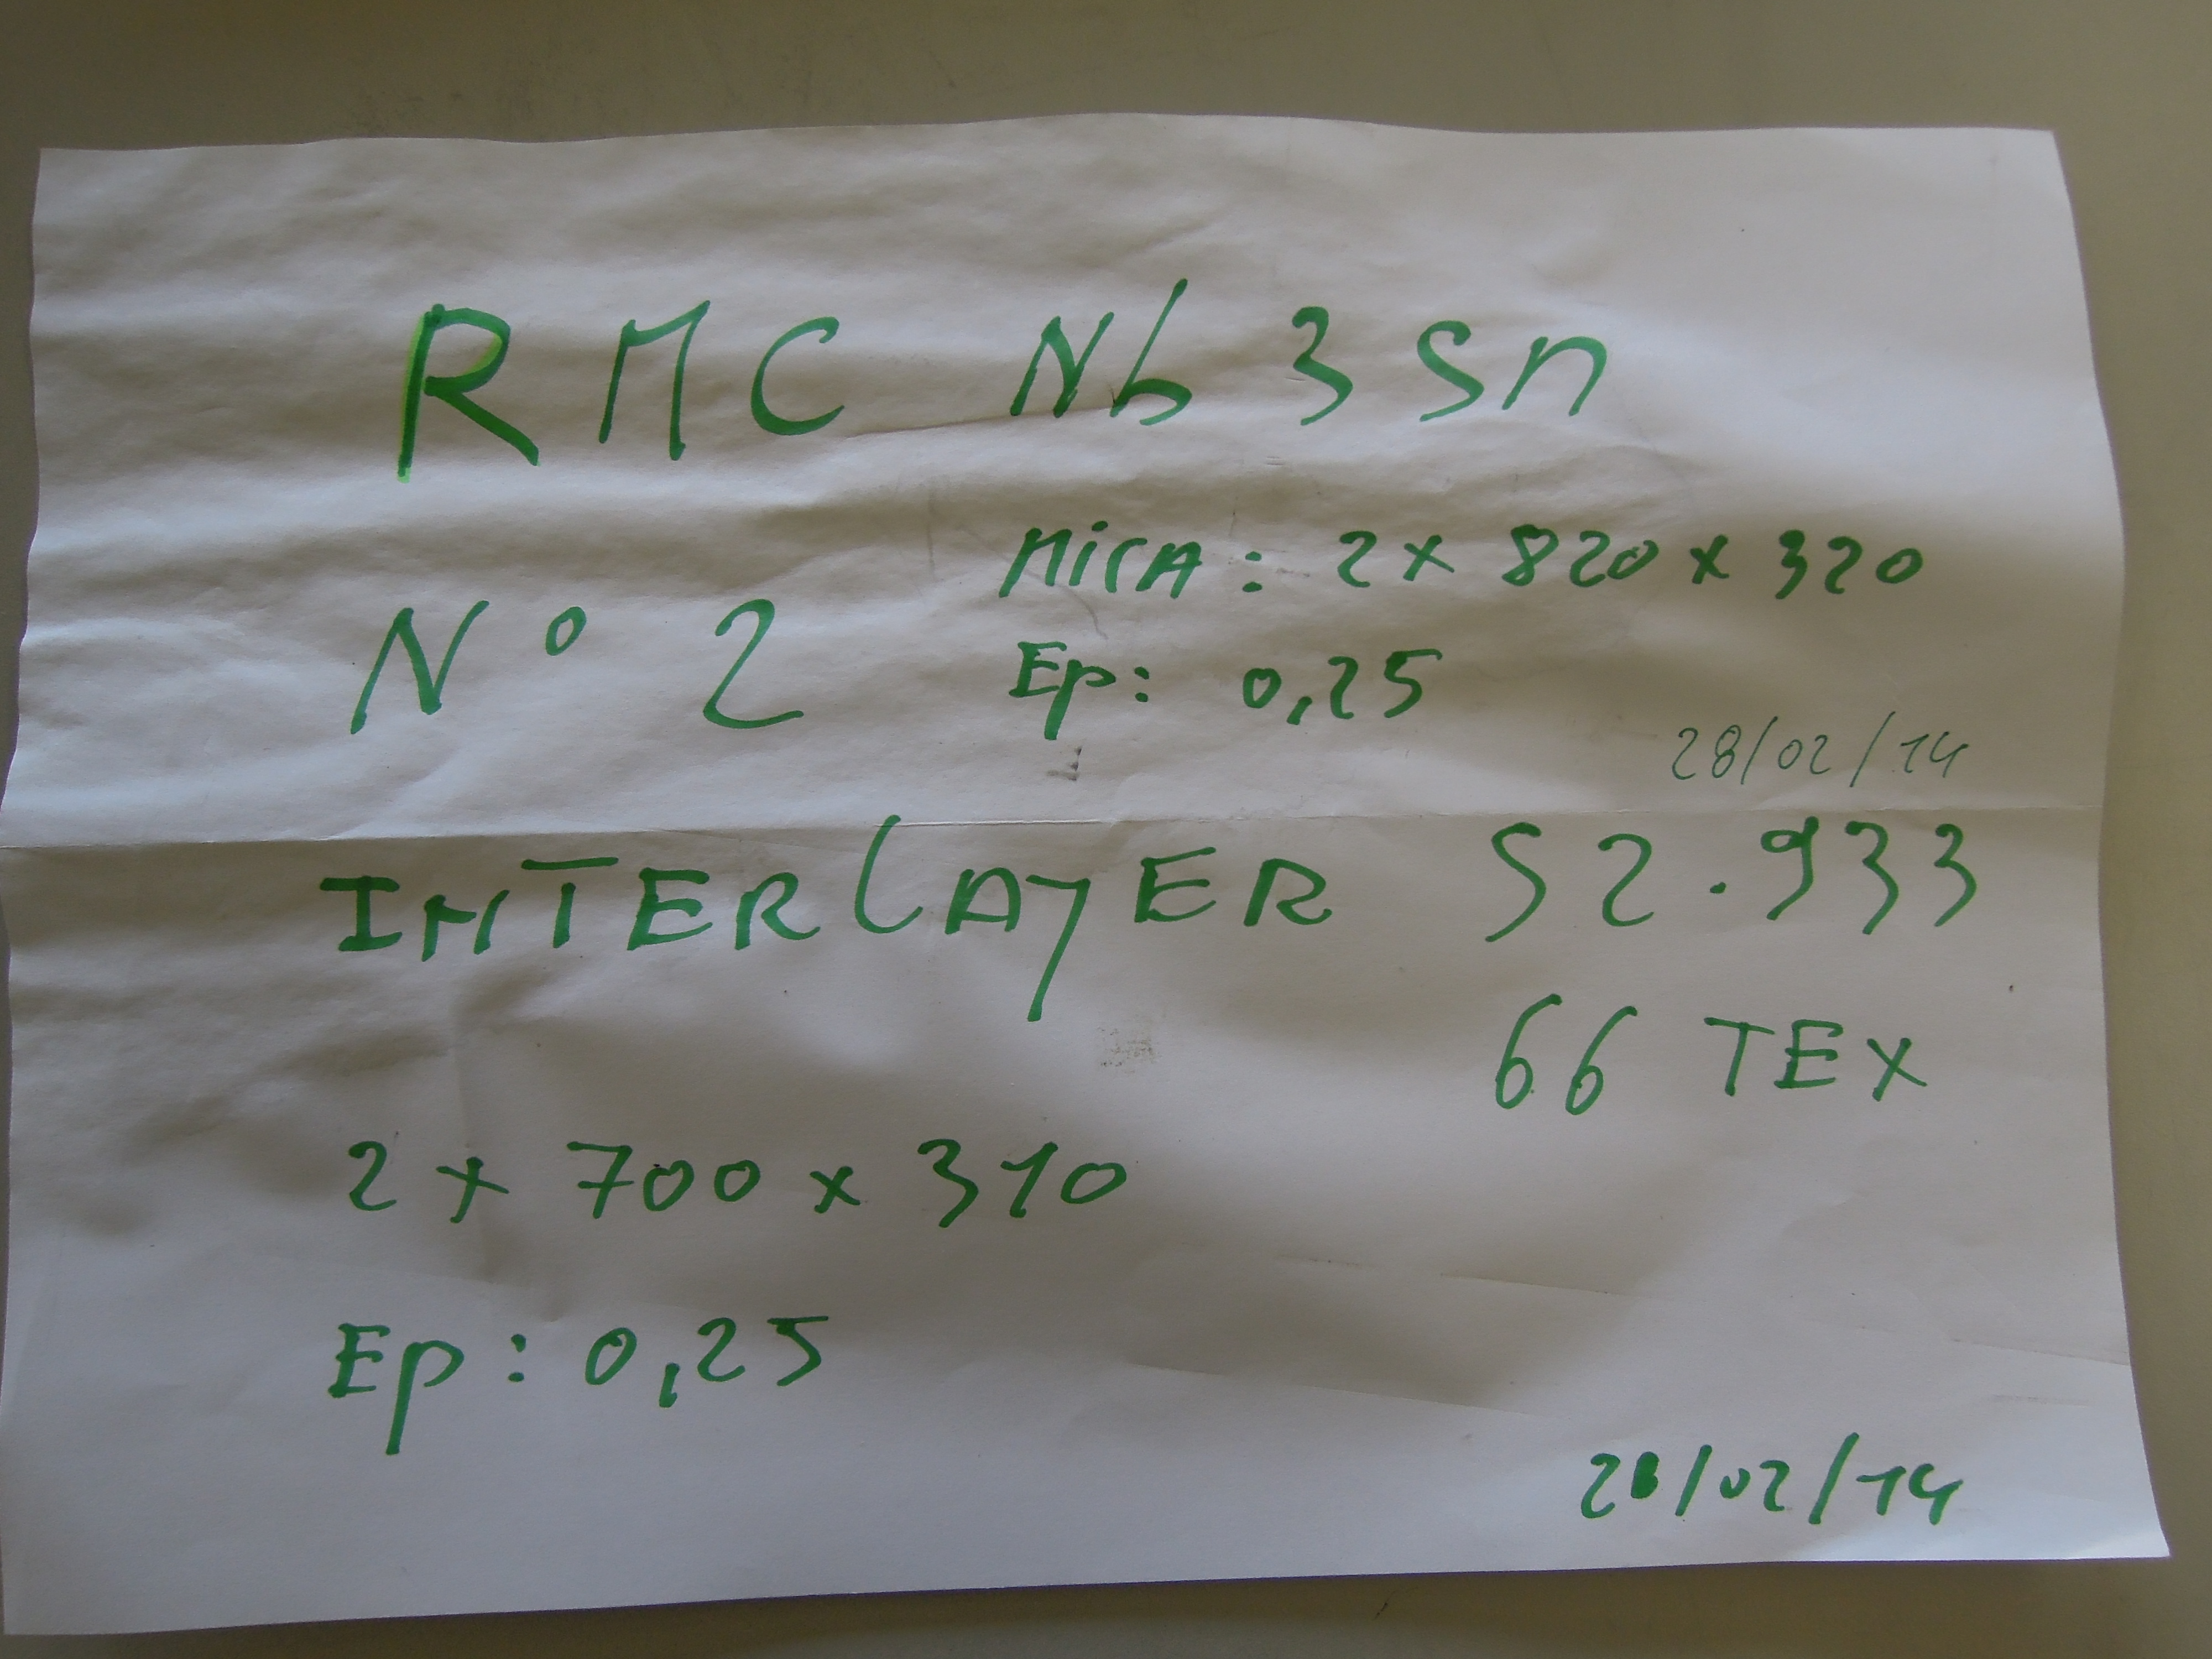 RMC Nb 3 Sn
MICA : 2 x 820 x 320
N° 2
Ep: 0,25
28/02/14
INTERLAYER S2.933
66 TEX
2 x 700 x 310
Ep : 0,25
28/02/14